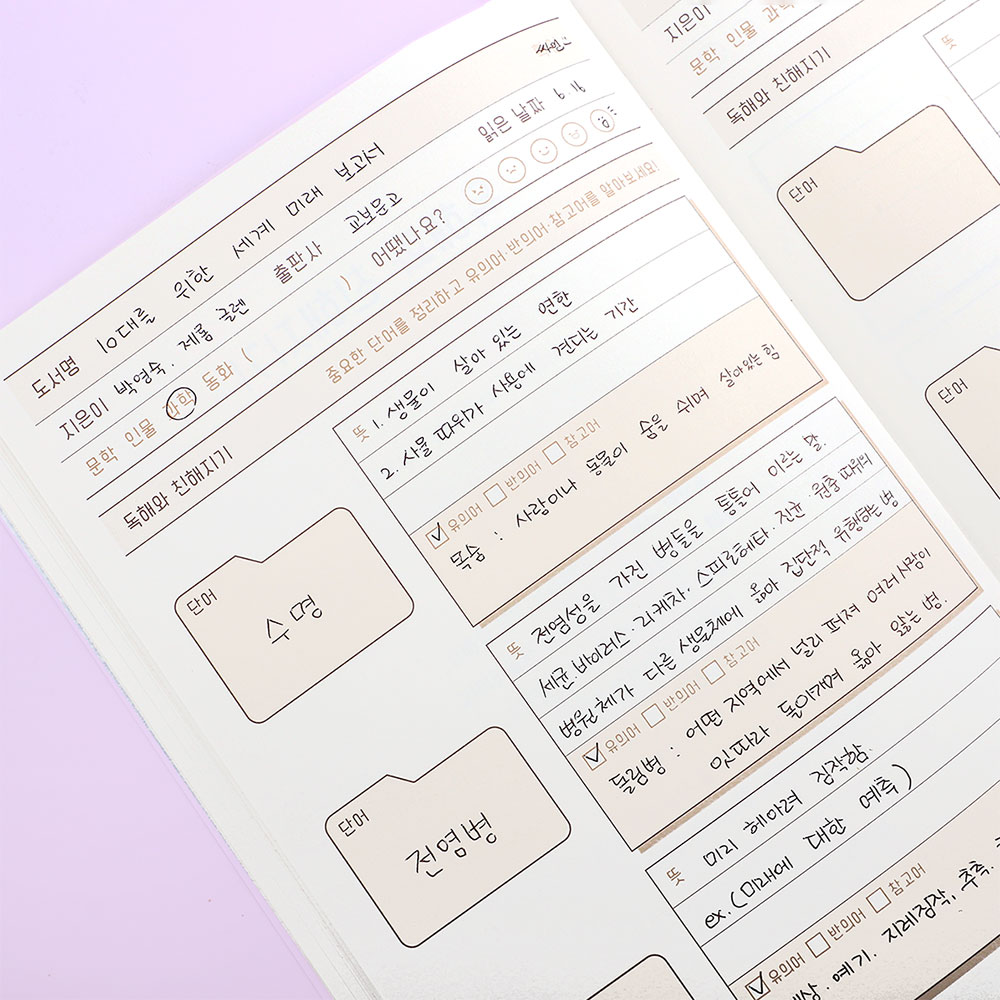 싸인
도서명 10대를 위한 세계 미래 보고서 읽은 날짜 6.16
지은이 박영숙. 제롬 글렌 출판사 교보문고
문학 인물 과학 동화 ( ) 어땠나요?
독해와 친해지기 중요한 단어를 정리하고 유의어·반의어·참고어를 알아보세요!
단어
수명
뜻 1. 생물이 살아 있는 연한
2. 사물 따위가 사용에 견디는 기간
유의어 반의어 참고어
목숨 : 사람이나 동물이 숨을 쉬며 살아있는 힘
단어
전염병
뜻 전염성을 가진 병들을 통틀어 이르는 말.
세균. 바이러스. 리케차. 스피로헤타. 진균. 원충 따위의
병원체가 다른 생물체에 옮아 집단적 유행하는 병
유의어 반의어 참고어
돌림병 : 어떤 지역에서 널리 퍼져 여러 사람이
잇따라 돌아가며 옮아 앓는 병.
뜻 미리 헤아려 짐작함.
ex. (미래에 대한 예측)
유의어 반의어 참고어
예기. 지레짐작, 추측.
지은이
문학 인물 과학
독해와 친해지기
뜻
단어
단어